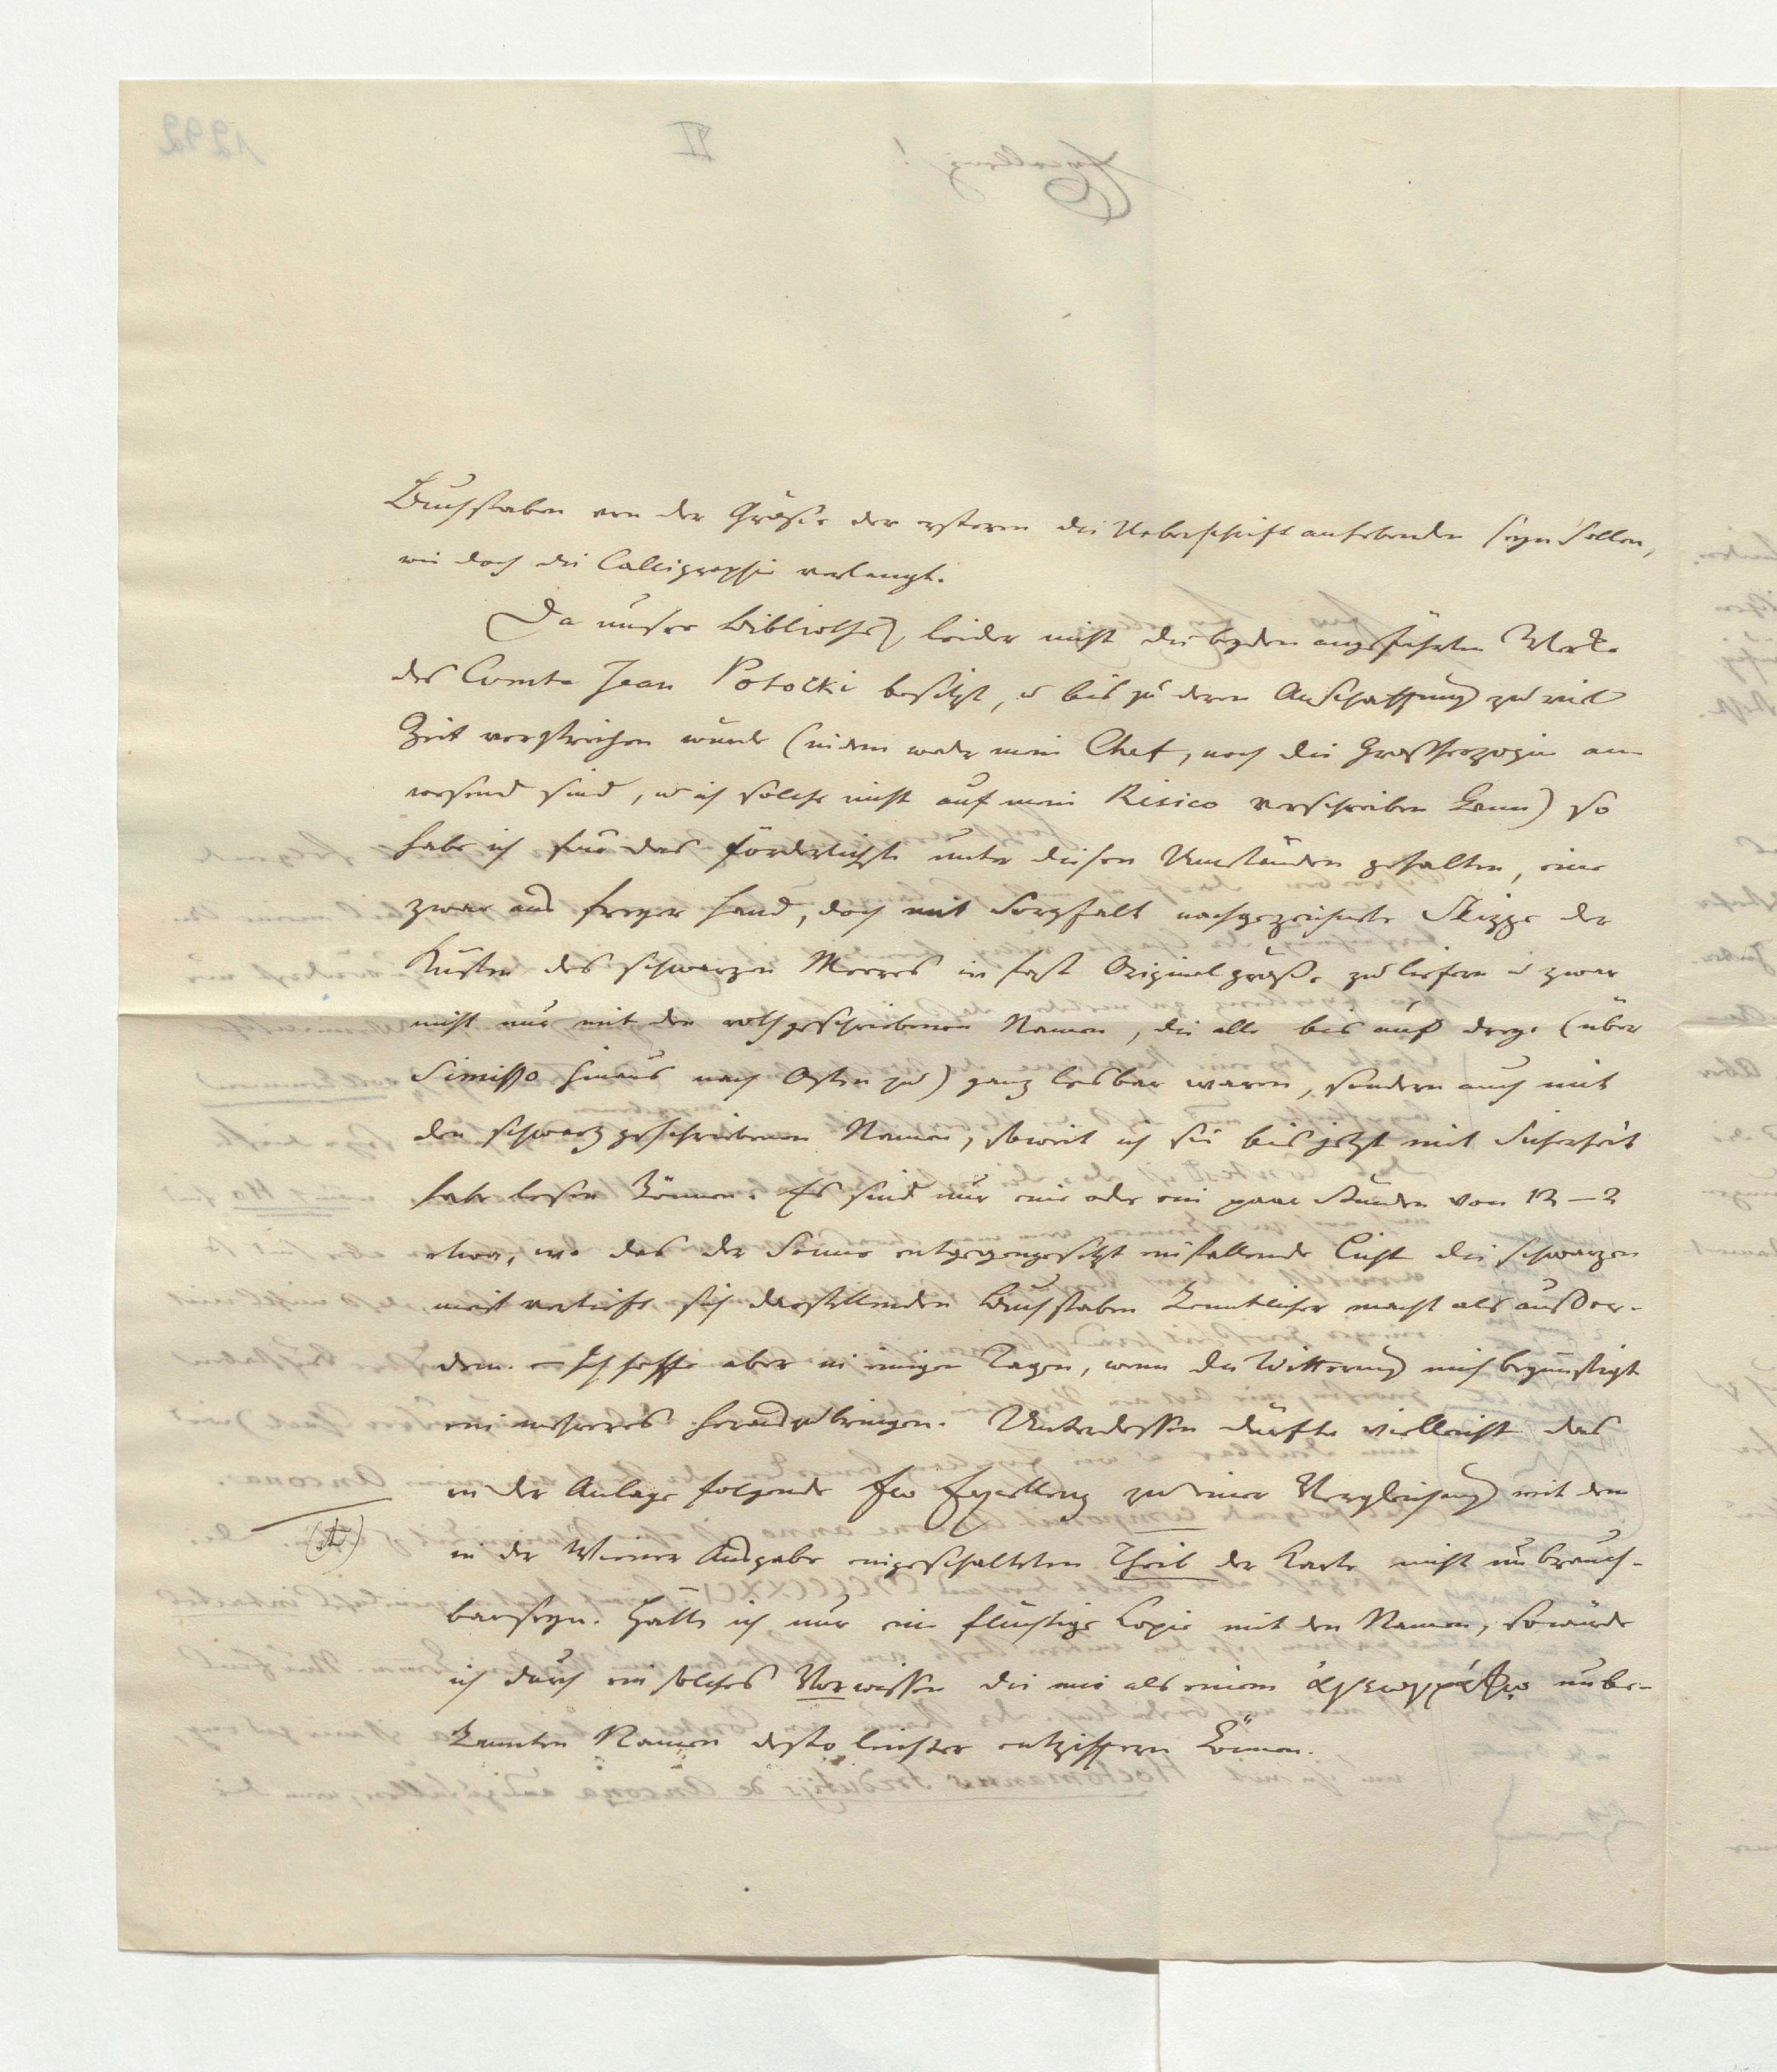 Buchstaben von der Größe der ersteren die Ueberschrift anhebenden seyn sollen,
wie doch die Calligraphie verlangt.
Da unsere Bibliothek leider nicht die beyden angeführten Werke
des Comte Jean Potocki besitzt, u bis zu deren Anschaffung zu viel
Zeit verstreichen würde (indem weder mein Chef, noch die Großherzogin an
wesend sind, u ich solche nicht auf mein Risico verschreiben kann) so
habe ich für das förderlichste unter diesen Umständen gehalten, eine
zwar aus freyer Hand, doch mit Sorgfalt nachgezeichnete Skizze der
Küsten des schwarzen Meeres in fast Originalgröße zu liefern u zwar
nicht nur mit den roth geschriebenen Namen, die alle bis auf dreye (über
Simisso hinaus nach Osten zu) ganz lesbar waren, sondern auch mit
den schwarz geschriebenen Namen, soweit ich sie bis jetzt mit Sicherheit
habe lesen können. Es sind nur eine oder ein paar Stunden von 12–2
etwa, wo das der Sonne entgegengesetzt einfallende Licht die schwarzen
meist verlöscht sich darstellenden Buchstaben kenntlicher macht als außer-
dem. – Ich hoffe aber in einigen Tagen, wenn die Witterung mich begünstigt
ein mehreres herauszubringen. Unterdessen dürfte vielleicht das
in der Anlage folgende Ew Exzellenz zu einer Vergleichung mit dem
in der Wiener Ausgabe eingeschalteten Theil der Karte nicht unbrauch-
bar seyn. Hätte ich nur eine flüchtige Copie mit den Namen, so würde
ich durch ein solches Vorwissen die mir als einem ἀγεωγράφῳ unbe-
kannten Namen desto leichter entziffern können.